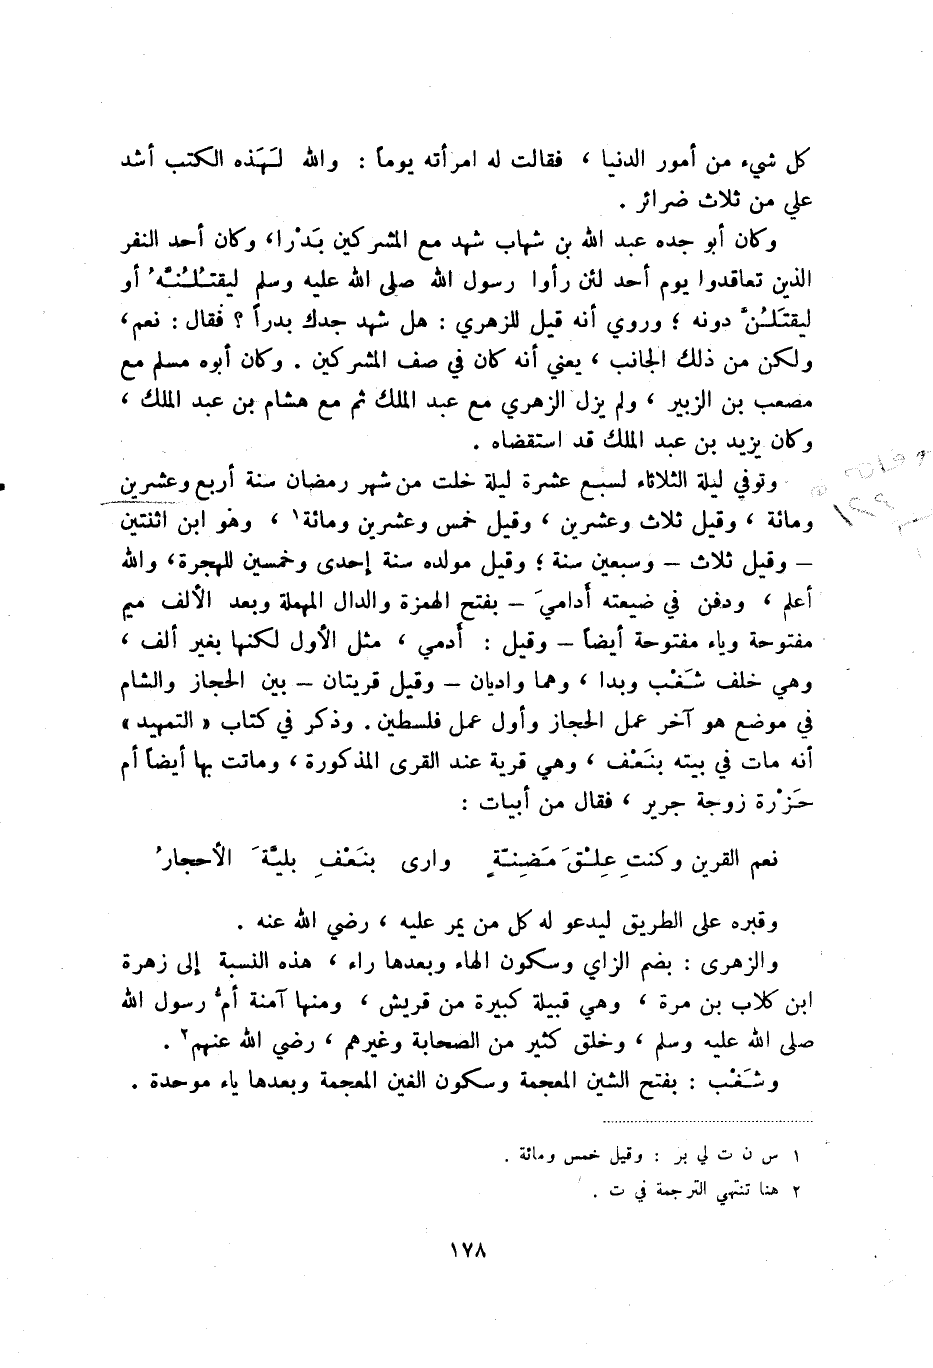 كل شيء من أمور الدنيا ، فقالت له امرأته يوماً : والله لَهَذه الكتب أشد
علي من ثلاث ضرائر .
وكان أبو جده عبد الله بن شهاب شهد مع المشركين بَدْرا، وكان أحد النفر
الذين تعاقدوا يوم أحد لئن رأوا رسول الله صلى الله عليه وسلم ليقتلُنَّهُ أو
ليقتَلُنَّ دونه ؛ وروي أنه قيل للزهري : هل شهد جدك بدراً ؟ فقال : نعم،
ولكن من ذلك الجانب ، يعني أنه كان في صف المشركين . وكان أبوه مسلم مع
مصعب بن الزبير ، ولم يزل الزهري مع عبد الملك ثم مع هشام بن عبد الملك ،
وكان يزيد بن عبد الملك قد استقضاه .
وتوفي ليلة الثلاثاء لسبع عشرة ليلة خلت من شهر رمضان سنة أربع وعشرين
ومائة ، وقيل ثلاث وعشرين ، وقيل خمس وعشرين ومائة١ ، وهو ابن اثنتين
– وقيل ثلاث – وسبعين سنة ؛ وقيل مولده سنة إحدى وخمسين للهجرة، والله
أعلم ، ودفن في ضيعته أَدامىَ – بفتح الهمزة والدال المهملة وبعد الألف ميم
مفتوحة وياء مفتوحة أيضاً – وقيل : أَدمي ، مثل الأول لكنها بغير ألف ،
وهي خلف شَغْب وبدا ، وهما واديان – وقيل قريتان – بين الحجاز والشام
في موضع هو آخر عمل الحجاز وأول عمل فلسطين. وذكر في كتاب « التمهيد »
أنه مات في بيته بنَعْف ، وهي قرية عند القرى المذكورة ، وماتت بها أيضاً أم
حَزْرة زوجة جرير ، فقال من أبيات :
نعم القرين وكنتِ عِلْقَ مَضِنةٍ وارى بنَعْفِ بليَّةَ الأحجارُ
وقبره على الطريق ليدعو له كل من يمر عليه ، رضي الله عنه .
والزهري : بضم الزاي وسكون الهاء وبعدها راء ، هذه النسبة إلى زهرة
ابن كلاب بن مرة ، وهي قبيلة كبيرة من قريش ، ومنها آمنة أمُّ رسول الله
صلى الله عليه وسلم ، وخلق كثير من الصحابة وغيرهم ، رضي الله عنهم٢ .
وشَغْب : بفتح الشين المعجمة وسكون الغين المعجمة وبعدها باء موحدة .
١ س ن ت لي بر : وقيل خمس ومائة .
٢ هنا تنتهي الترجمة في ت .
١٧٨